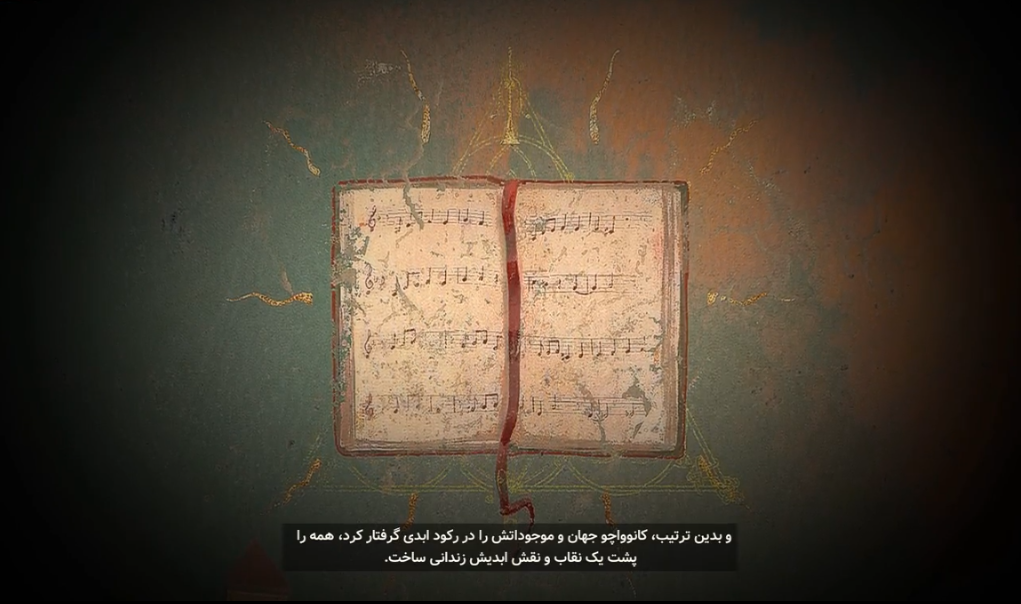 و بدین ترتیب، کانوواچو جهان و موجوداتش را در رکود ابدی گرفتار کرد، همه را
پشت یک نقاب و نقش ابدیش زندانی ساخت.